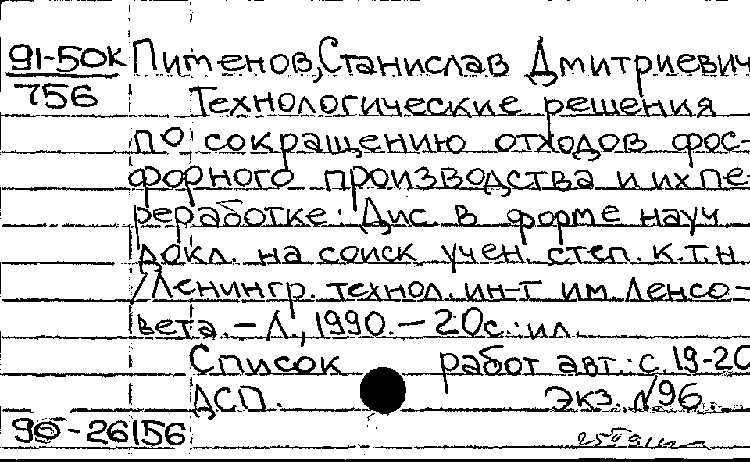 91-50К Пименов, Станислав Дмитриевич
756 Технологические решения
по сокращению отходов фос-
форного производства и их пе-
реработке: Дис. в форме науч
докл. на соиск учен. степ. к.т.н.
/Ленингр. технол. ин-т им. Ленсо-
вета. – Л., 1990. – 20с.: ил.
Список работ авт.: с. 19-20
ДСП. Экз. №96.
90-26156